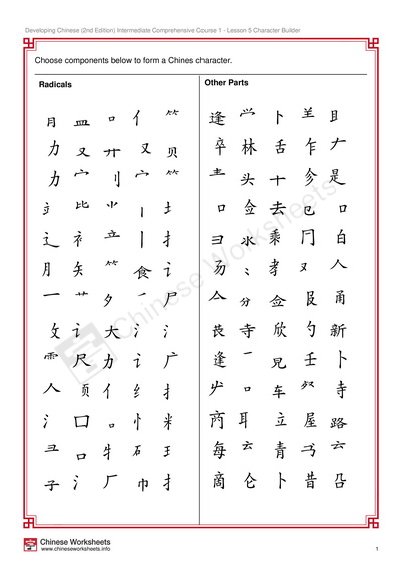 Developing Chinese (2nd Edition) Intermediate Comprehensive Course 1 - Lesson 5 Character Builder
Choose components below to form a Chines character.
Radicals
Other Parts
⺼ 皿 口 亻 ⺮
力 又 廾 又 贝
力 宀 刂 宀 ⺮
讠 比 丨 土
辶 衤 立 丨 扌
月 矢 ⺮ 食 讠
一 艹 夕 尸
攵 讠 大 氵 氵
⻗ 尺 力 讠 广
人 页 亻 纟 扌
氵 囗 口 忄 米
彐 口 牜 石 王
子 氵 厂 巾 扌
逢 卜 目
卒 林 舌 乍
龶 头 十 参 是
口 佥 去 包 口
彐 水 乘 冂 白
孝 又 人
亼 分 佥 甬
丧 寺 欣 勺 新
逢 一 兄 壬 卜
口 车 寺
商 耳 立 屋 路
每 云 青 云
商 仑 卜 昔
Chinese Worksheets
Chinese Worksheets
www.chineseworksheets.info
1